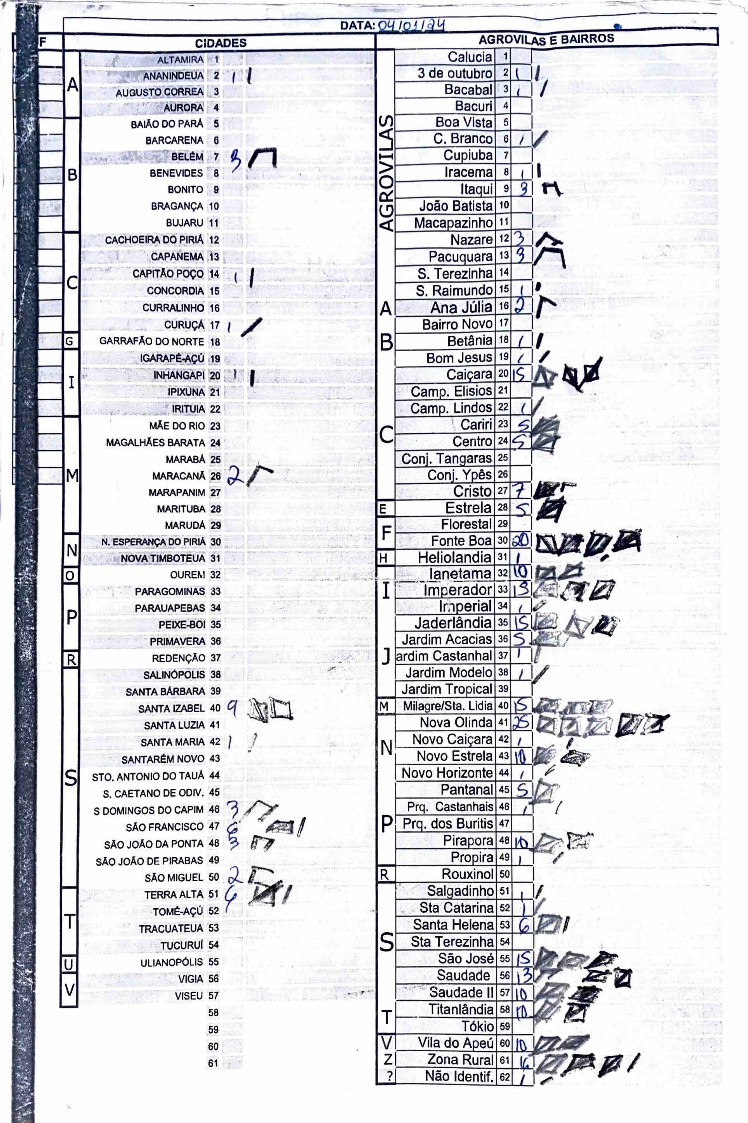 DATA: 04/01/24
F CIDADES
A
ALTAMIRA 1
ANANINDEUA 2 1
AUGUSTO CORREA 3
AURORA 4
B
BAIÃO DO PARÁ 5
BARCARENA 6
BELÉM 7 3
BENEVIDES 8
BONITO 9
BRAGANÇA 10
BUJARU 11
C
CACHOEIRA DO PIRIÁ 12
CAPANEMA 13
CAPITÃO POÇO 14 1
CONCORDIA 15
CURRALINHO 16
CURUÇÁ 17 1
G
GARRAFÃO DO NORTE 18
I
IGARAPÉ-AÇÚ 19
INHANGAPI 20 1
IPIXUNA 21
IRITUIA 22
M
MÃE DO RIO 23
MAGALHÃES BARATA 24
MARABÁ 25
MARACANÃ 26 2
MARAPANIM 27
MARITUBA 28
MARUDÁ 29
N
N. ESPERANÇA DO PIRIÁ 30
NOVA TIMBOTEUA 31
O
OUREM 32
P
PARAGOMINAS 33
PARAUAPEBAS 34
PEIXE-BOI 35
PRIMAVERA 36
R
REDENÇÃO 37
S
SALINÓPOLIS 38
SANTA BÁRBARA 39
SANTA IZABEL 40 9
SANTA LUZIA 41
SANTA MARIA 42 1
SANTARÉM NOVO 43
STO. ANTONIO DO TAUÁ 44
S. CAETANO DE ODIV. 45
S DOMINGOS DO CAPIM 46 3
SÃO FRANCISCO 47 6
SÃO JOÃO DA PONTA 48 3
SÃO JOÃO DE PIRABAS 49
SÃO MIGUEL 50 2
T
TERRA ALTA 51 6
TOMÉ-AÇÚ 52
TRACUATEUA 53
TUCURUÍ 54
U
ULIANÓPOLIS 55
V
VIGIA 56
VISEU 57
58
59
60
61
AGROVILAS E BAIRROS
AGROVILAS
Calucia 1
3 de outubro 2 1
Bacabal 3 1
Bacuri 4
Boa Vista 5
C. Branco 6 1
Cupiuba 7
Iracema 8 1
Itaqui 9 3
João Batista 10
Macapazinho 11
Nazare 12 3
Pacuquara 13 3
S. Terezinha 14
S. Raimundo 15 1
A
Ana Júlia 16 2
Bairro Novo 17
B
Betânia 18 1
Bom Jesus 19 1
Caiçara 20 15
Camp. Elisios 21
Camp. Lindos 22 1
C
Cariri 23 5
Centro 24 5
Conj. Tangaras 25
Conj. Ypês 26
Cristo 27 7
E
Estrela 28 5
F
Florestal 29
Fonte Boa 30 20
H
Heliolandia 31 1
I
Ianetama 32 10
Imperador 33 13
Imperial 34 1
Jaderlândia 35 15
Jardim Acacias 36 5
J
ardim Castanhal 37 1
Jardim Modelo 38 1
Jardim Tropical 39
M
Milagre/Sta. Lidia 40 15
N
Nova Olinda 41 25
Novo Caiçara 42 1
Novo Estrela 43 10
Novo Horizonte 44 1
Pantanal 45 5
P
Prq. Castanhais 46 1
Prq. dos Buritis 47
Pirapora 48 10
Propira 49 1
R
Rouxinol 50
S
Salgadinho 51 1
Sta Catarina 52 1
Santa Helena 53 6
Sta Terezinha 54
São José 55 15
Saudade 56 13
Saudade II 57 10
T
Titanlândia 58 10
Tókio 59
V
Vila do Apeú 60 10
Z
Zona Rural 61 16
?
Não Identif. 62 1